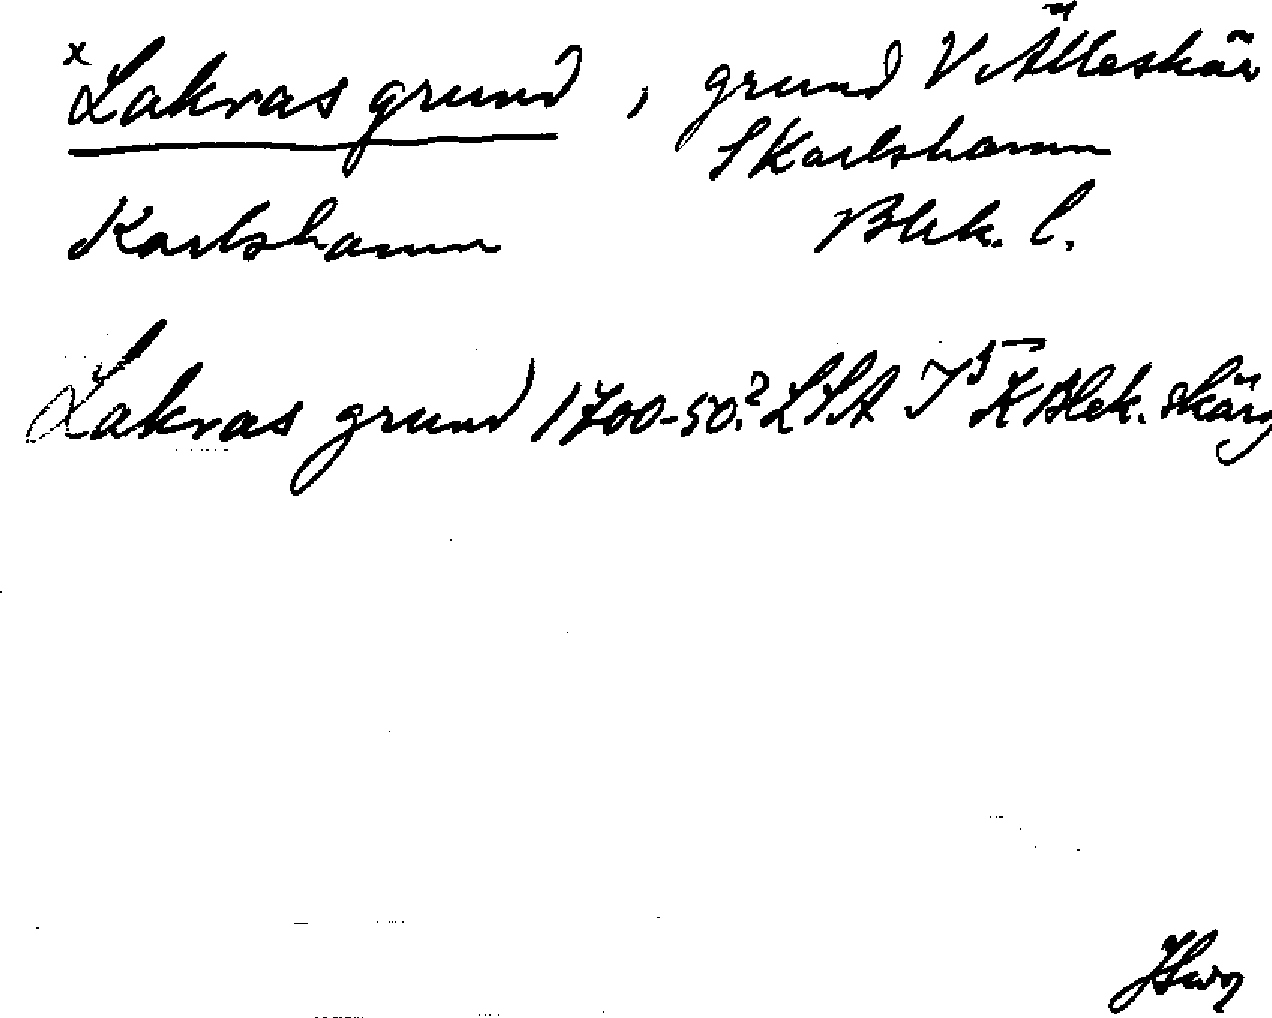 x Lakvas grund, grund V. Älleskär
S Karlshamn
Karlshamn Blek. l.
Lakvas grund 1700-50.? LSA I 5 K Blek. skärg